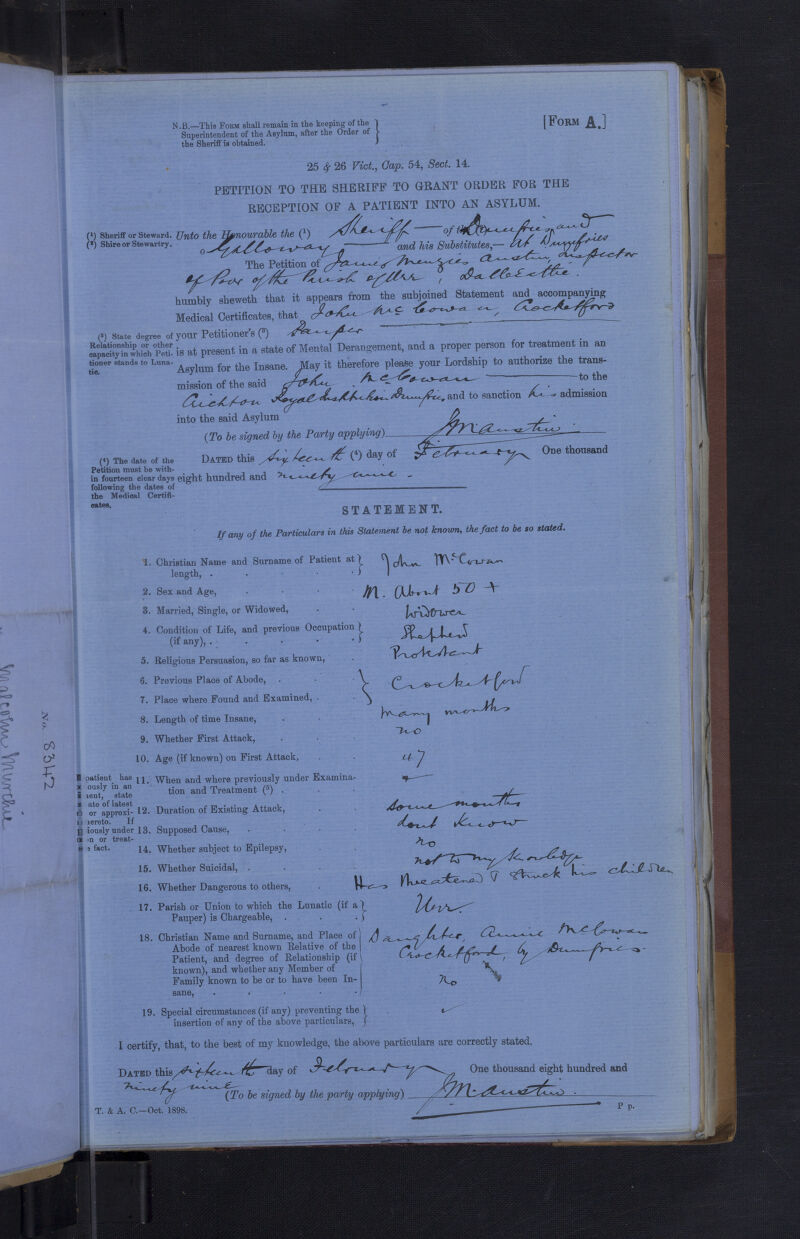 N.B.—This Form shall remain in the keeping of the
Superintendent of the Asylum, after the Order of
the Sheriff is obtained.
[Form A.]
25 & 26 Vict., Cap. 54, Sect. 14.
PETITION TO THE SHERIFF TO GRANT ORDER FOR THE
RECEPTION OF A PATIENT INTO AN ASYLUM.
(1) Sheriff or Steward.
(2) Shire or Stewartry.
Unto the Honourable the (1) Sheriff — of the Dumfries and
Galloway — and his Substitutes,— At Dumfries
The Petition of James Menzies Austin, Inspector
of Poor of the Parish of Urr, Dalbeattie.
humbly sheweth that it appears from the subjoined Statement and accompanying
Medical Certificates, that John McCowan, Crocketford
(3) State degree of
Relationship or other
capacity in which Peti-
tioner stands to Luna-
tic.
your Petitioner's (3) Pauper
is at present in a state of Mental Derangement, and a proper person for treatment in an
Asylum for the Insane. May it therefore please your Lordship to authorize the trans-
mission of the said John McCowan — to the
Crichton Royal Institution Dumfries, and to sanction his admission
into the said Asylum
(To be signed by the Party applying) JM Austin
(4) The date of the
Petition must be with-
in fourteen clear days
following the dates of
the Medical Certifi-
cates.
Dated this sixteenth (4) day of February One thousand
eight hundred and ninety nine.
STATEMENT.
If any of the Particulars in this Statement be not known, the fact to be so stated.
1. Christian Name and Surname of Patient at
length, . John McCowan
2. Sex and Age, M. About 50 +
3. Married, Single, or Widowed, Widower
4. Condition of Life, and previous Occupation
(if any), . Shepherd
5. Religious Persuasion, so far as known, Protestant
6. Previous Place of Abode, . Crocketford
7. Place where Found and Examined, .
8. Length of time Insane, many months
9. Whether First Attack, no
10. Age (if known) on First Attack, 47
11. When and where previously under Examina-
tion and Treatment (5) .
12. Duration of Existing Attack, some months
13. Supposed Cause, dont know
14. Whether subject to Epilepsy, no
15. Whether Suicidal, . not to my knowledge
16. Whether Dangerous to others, Has threatened & struck his children
17. Parish or Union to which the Lunatic (if a
Pauper) is Chargeable, . Urr.
18. Christian Name and Surname, and Place of
Abode of nearest known Relative of the
Patient, and degree of Relationship (if
known), and whether any Member of
Family known to be or to have been In-
sane,
Daughter, Annie McCowan
Crocketford, by Dumfries
No
19. Special circumstances (if any) preventing the
insertion of any of the above particulars,
patient has
ously in an
state
ate of latest
or approxi-
hereto. If
iously under
on or treat-
fact.
I certify, that, to the best of my knowledge, the above particulars are correctly stated.
Dated this sixteenth day of February One thousand eight hundred and
ninety nine
(To be signed by the party applying) JM Austin.
T. & A. C.—Oct. 1898.
P p.
No. 8342
Malcolm Murchie